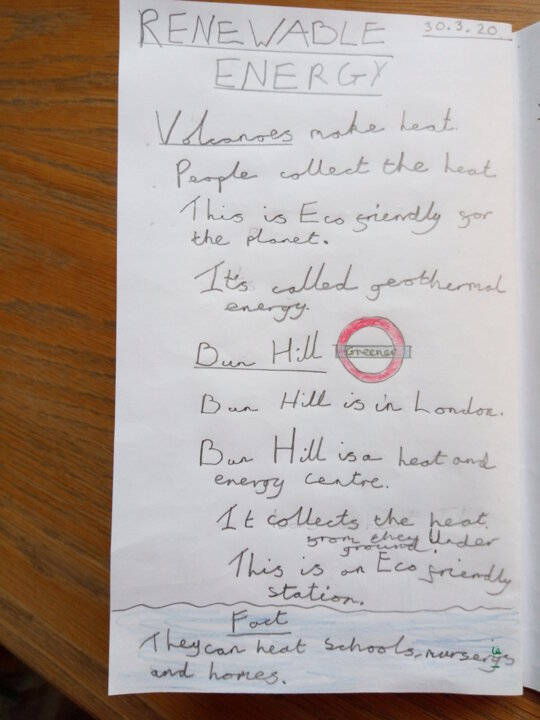 30.3.20
RENEWABLE
ENERGY
Volcanoes make heat.
People collect the heat
This is Eco friendly for
the planet.
It's called geothermal
energy.
Bun Hill Greener
Bun Hill is in London.
Bun Hill is a heat and
energy centre.
It collects the heat
from they Under
ground.
This is an Eco friendly
station.
Fact
They can heat schools, nurseries
and homes.